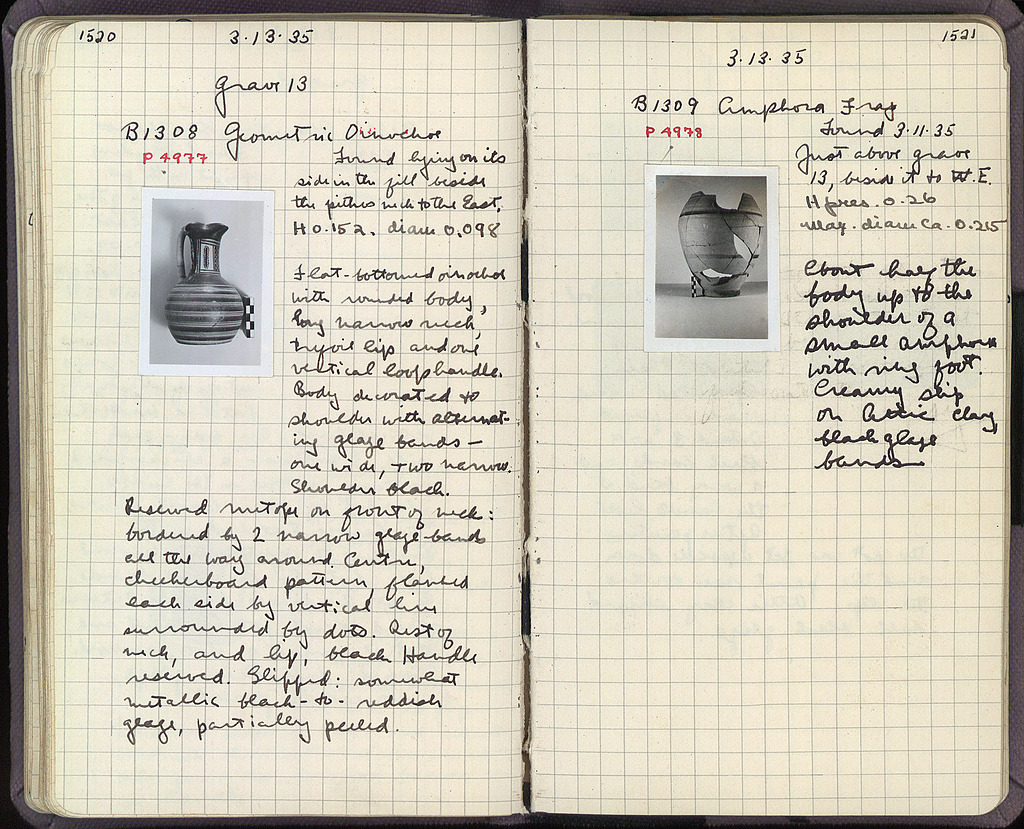 1520
3·13·35
Grave 13
B1308 Geometric Oinochoe
P 4977
Found lying on its
side in the fill beside
the pithos neck to the East.
H 0.152. diam 0.098
Flat-bottomed oinochoe
with rounded body,
long narrow neck,
trefoil lip and one
vertical loop handle.
Body decorated to
shoulder with alternat-
ing glaze bands —
one wide, two narrow.
Shoulder black.
Reserved metope on front of neck:
bordered by 2 narrow glaze bands
all the way around. Centre,
checkerboard pattern, flanked
each side by vertical line
surrounded by dots. Rest of
neck, and lip, black. Handle
reserved. Slipped: somewhat
metallic black-to-reddish
glaze, partially peeled.
1521
3·13·35
B1309 Amphora Frag
P 4978
Found 3·11·35
Just above grave
13, beside it to E.
H pres. 0.26
Max. diam ca. 0.215
About half the
body up to the
shoulder of a
small amphora
with ring foot.
Creamy slip
on Attic clay,
black glaze
bands